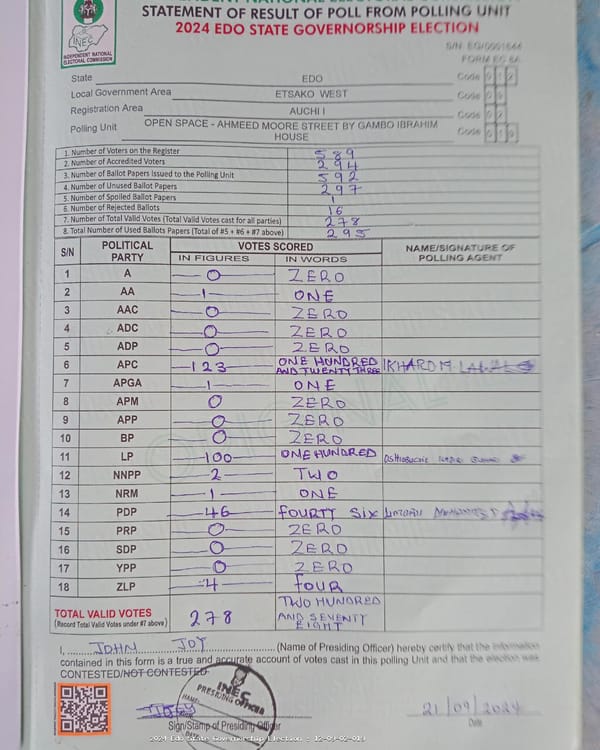 STATEMENT OF RESULT OF POLL FROM POLLING UNIT
2024 EDO STATE GOVERNORSHIP ELECTION
INEC
INDEPENDENT NATIONAL ELECTORAL COMMISSION
FORM EC 8A
State EDO Code 1 2
Local Government Area ETSAKO WEST Code
Registration Area AUCHI I Code 0 2
Polling Unit OPEN SPACE - AHMEED MOORE STREET BY GAMBO IBRAHIM HOUSE Code 0 1 9
1. Number of Voters on the Register 589
2. Number of Accredited Voters 294
3. Number of Ballot Papers Issued to the Polling Unit 592
4. Number of Unused Ballot Papers 297
5. Number of Spoiled Ballot Papers 1
6. Number of Rejected Ballots 16
7. Number of Total Valid Votes (Total Valid Votes cast for all parties) 278
8. Total Number of Used Ballots Papers (Total of #5 + #6 + #7 above) 295
S/N POLITICAL PARTY VOTES SCORED NAME/SIGNATURE OF POLLING AGENT
IN FIGURES IN WORDS
1 A 0 ZERO
2 AA 1 ONE
3 AAC 0 ZERO
4 ADC 0 ZERO
5 ADP 0 ZERO
6 APC 123 ONE HUNDRED AND TWENTY THREE
7 APGA 1 ONE
8 APM 0 ZERO
9 APP 0 ZERO
10 BP 0 ZERO
11 LP 100 ONE HUNDRED
12 NNPP 2 TWO
13 NRM 1 ONE
14 PDP 46 FOURTY SIX
15 PRP 0 ZERO
16 SDP 0 ZERO
17 YPP 0 ZERO
18 ZLP 4 FOUR
TOTAL VALID VOTES 278 TWO HUNDRED AND SEVENTY EIGHT
(Record Total Valid Votes under #7 above)
I, JOHN JOY (Name of Presiding Officer) hereby certify that the information
contained in this form is a true and accurate account of votes cast in this polling Unit and that the election was
CONTESTED/NOT CONTESTED
INEC
PRESIDING OFFICER
NAME:
21/09/2024
Sign/Stamp of Presiding Officer Date
2024 Edo State Governorship Election : 12-09-02-019